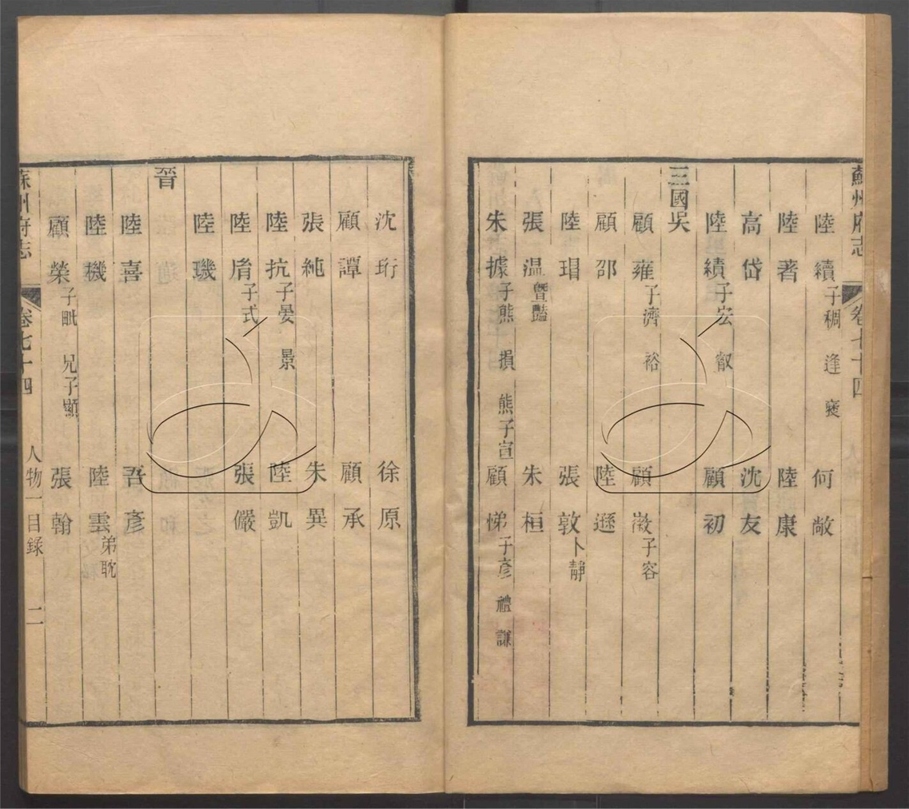 蘇州府志 卷七十四
陸續子稠 逢 褒 何敞
陸著 陸康
高岱 沈友
陸績子宏 叡 顧初
三國吳
顧雍子濟 裕 顧徵子容
顧邵 陸遜
陸瑁 張敦卜靜
張温曁豔 朱桓
朱據子熊 損 熊子宣 顧悌子彥 禮 謙
沈珩 徐原
顧譚 顧承
張純 朱異
陸抗子晏 景 陸凱
陸胤子式 張儼
陸璣
晉
陸喜 吾彥
陸機 陸雲弟耽
顧榮子毗 兄子顯 張翰
蘇州府志 卷七十四 人物一目録 二